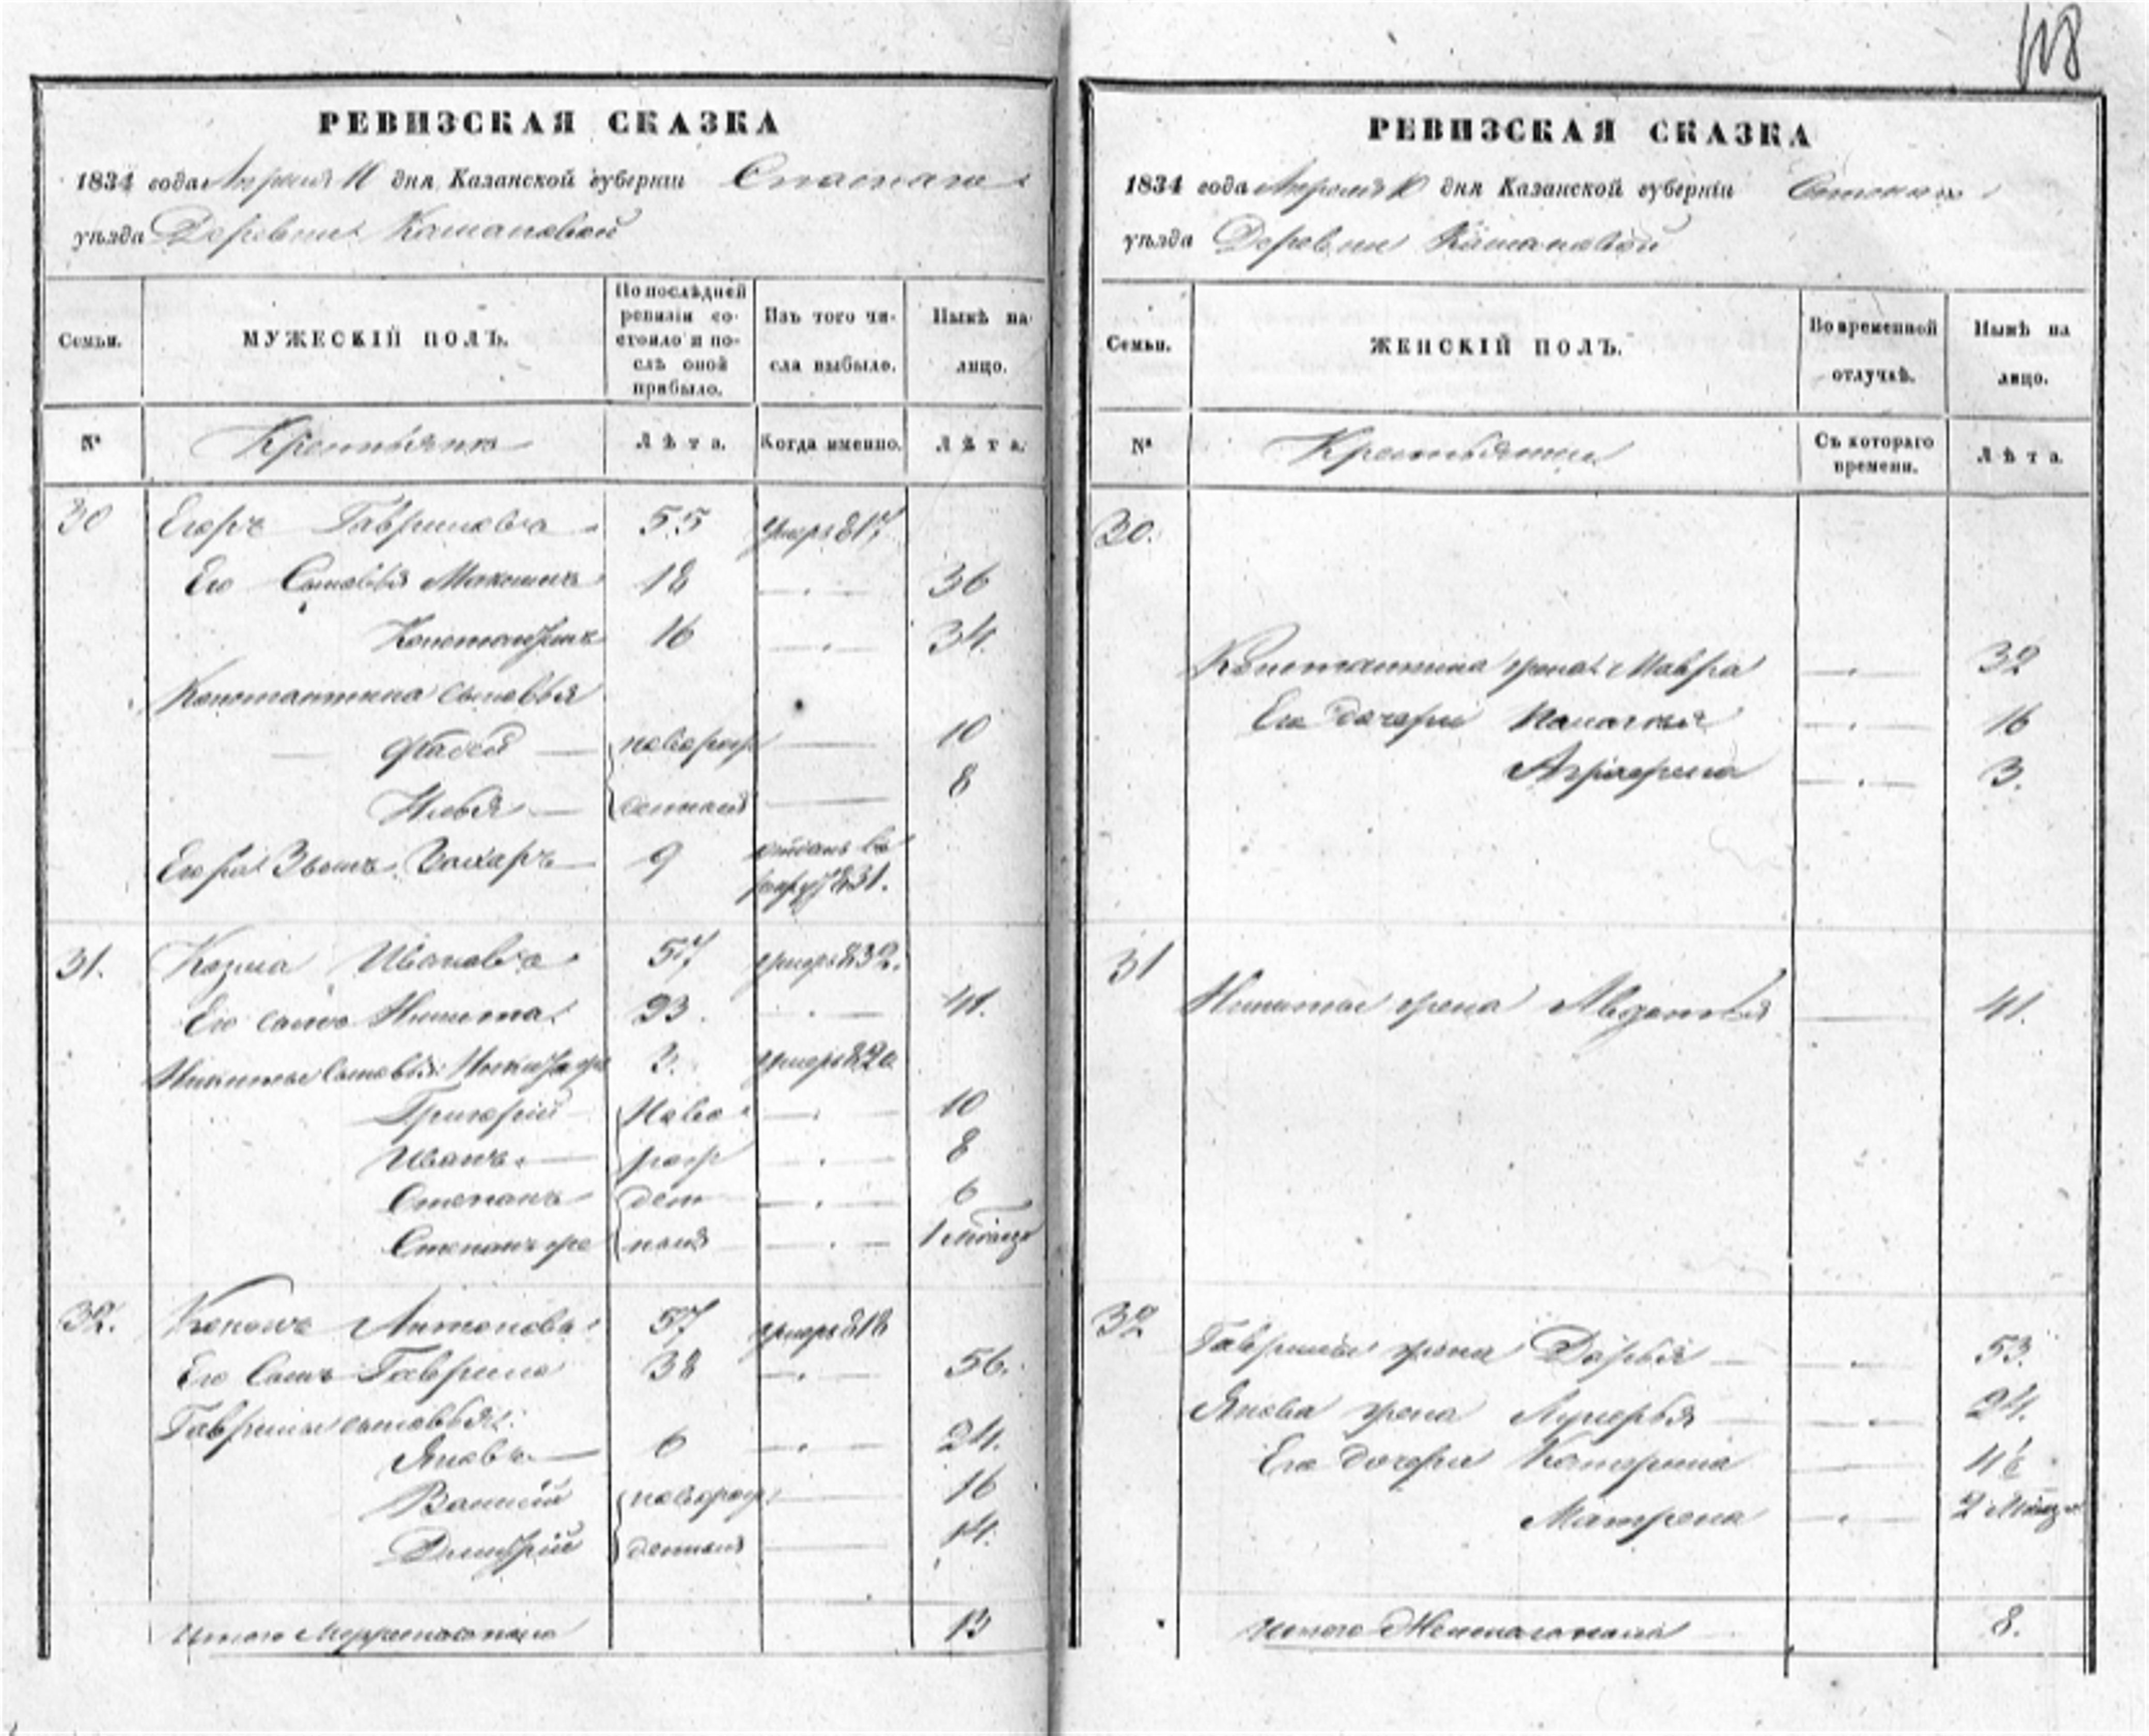 118
РЕВИЗСКАЯ СКАЗКА
1834 года Апреля 10 дня Казанской губерніи Спаскаго
уѣзда Деревни Кашаповой
Семьи.
МУЖЕСКІЙ ПОЛЪ.
По послѣдней ревизіи состояло и послѣ оной прибыло.
Изъ того числа выбыло.
Нынѣ на лицо.
№
Крестьянъ
Лѣта.
Когда именно.
Лѣта.
30 Егоръ Гавриловъ 55 умеръ 817
Его Сыновья Максимъ 18 36
Константинъ 16 34.
Константина сыновья
Фадей новорож 10
Илья денныя 8
Егора Зять Захаръ 9 отданъ въ рекру 831.
31. Козма Ивановъ 57 умеръ 832.
Его сынъ Никита 23. 41.
Никиты Сыновья 3. умеръ 820
Григорій Ново 10
Иванъ рож 8
Степанъ ден 6
Степанъ же ныя 1 мѣсяца
32. Кононъ Антоновъ 57 умеръ 818
Его Сынъ Гаврила 38 56.
Гаврилы сыновья
Яковъ 6 24.
Василій новорож 16
Дмитрій денныя 14.
Итого Мужескаго пола 13
РЕВИЗСКАЯ СКАЗКА
1834 года Апреля 10 дня Казанской губерніи
уѣзда Деревни Кашаповой
Семьи.
ЖЕНСКІЙ ПОЛЪ.
Во временной отлучкѣ.
Нынѣ на лицо.
№
Крестьянки
Съ котораго времени.
Лѣта.
30.
Константина жена Мавра 32
Его дочери Палагѣя 16
Аграфена 3.
31
Никиты жена Авдотья 41.
32
Гаврилы жена Дарья 53.
Якова жена Лукерья 24.
Его дочери Катерина
Матрена 2 Мѣсяца
Итого Женскаго пола 8.